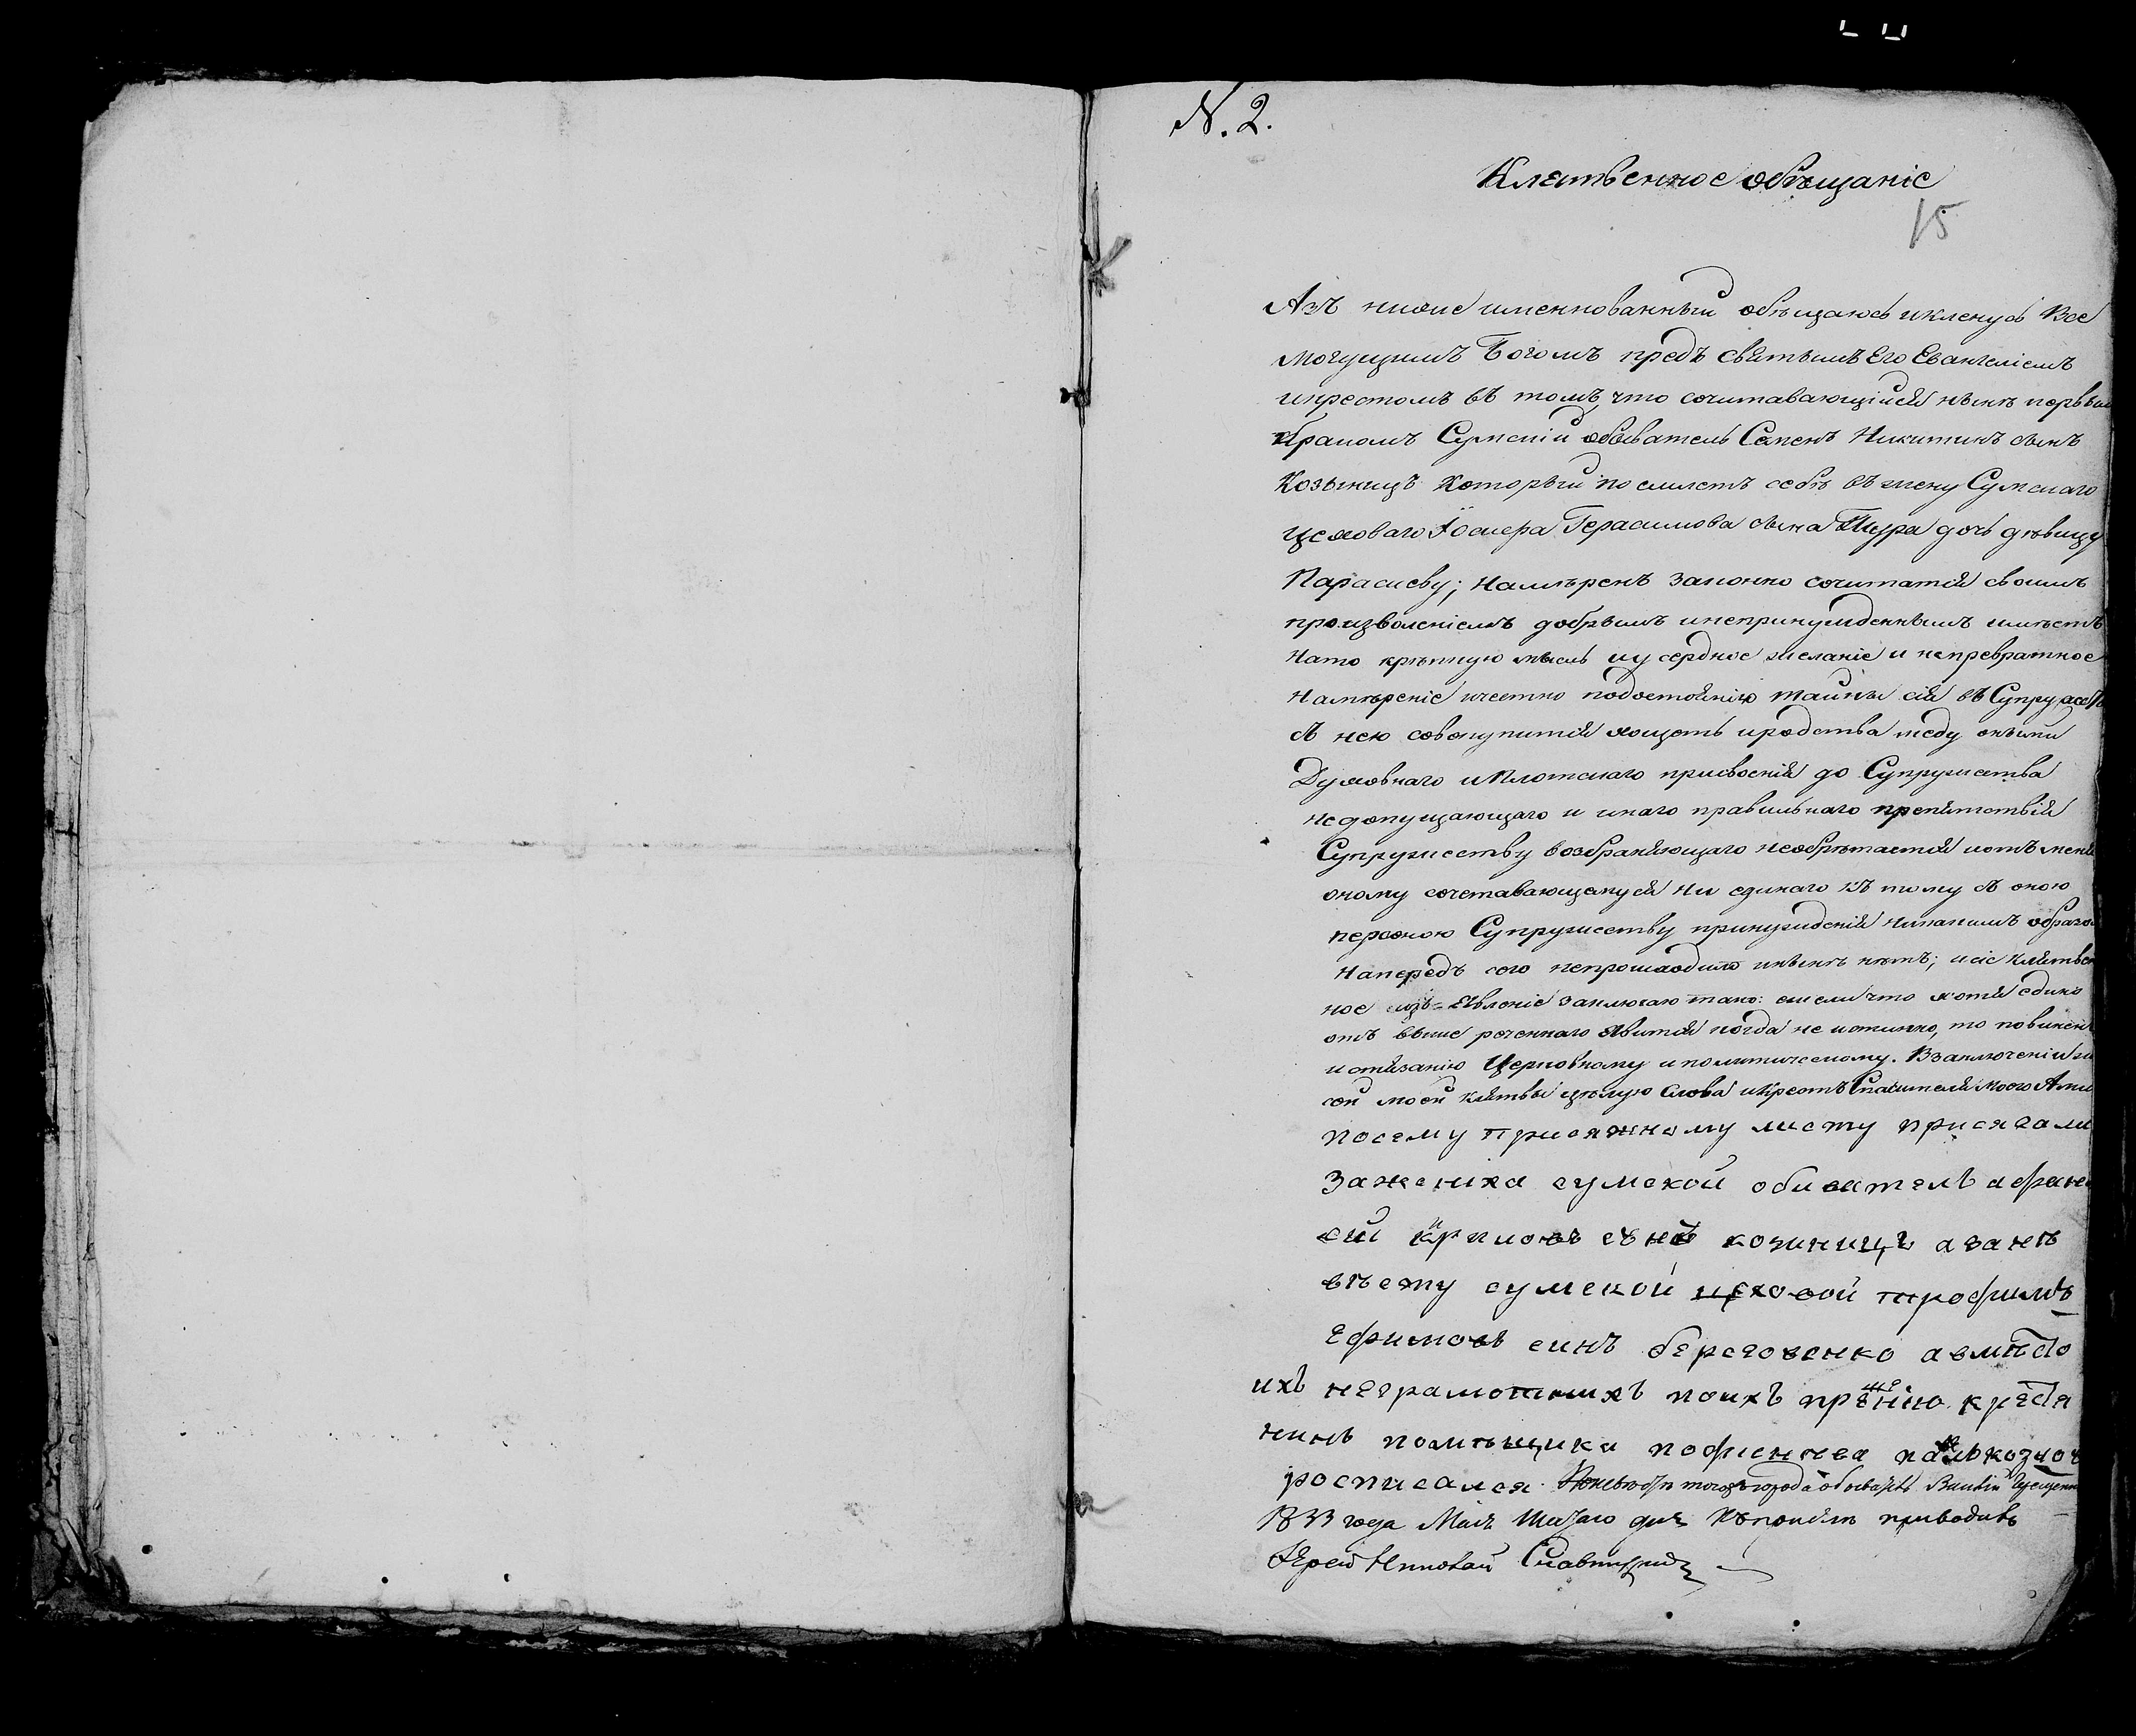 N. 2.
Клятвенное обѣщаніе
15
Азъ ниже именнованный обѣщаюсь и кленусь Все
могущимъ Богомъ предъ святымъ Его Евангеліемъ
икрестомъ въ томъ, что сочитавающійся нынѣ первым
бракомъ Сумскій обыватель Семенъ Никитинъ сынъ
Козыницъ который поемлетъ себѣ въ жену Сумскаго
цеховаго Герасимова сына дочь дѣвицу
Параскеву; намѣренъ законно сочитатися своимъ
произволеніемъ добрымъ инепринужденнымъ имѣетъ
нато крѣпкую мысль иусердное желаніе и непревратное
намѣреніе ичестно подостоянію тайны сія въ Супружеств
съ нею совокупитися хощетъ иродства межу оными
Духовнаго иплотскаго присвоенія до Супружества
недопущающаго и инаго правильнаго препятствія
Супружеству возбраняющаго необрѣтается иотъ меня
оному сочетавающемуся ни единаго къ тому съ оною
персоною Супружеству принужденія никакимъ образом
напередъ сего непроисходило инынѣ нѣтъ; исіе клятвен
ное изъ-явленіе заключаю тако: ежели что хотя едино
отъ выше реченнаго явится когда не истинно, то повинен
истязанію Церковному иполитическому. Взаключеніи ж
сей моей клятвы цѣлую слова икрестъ Спасителя моего Ами
посему присяжному листу присягали
заженіха сумской обиватель афана
сий козиницъ азанѣ
вѣсту сумской цеховой трофимъ
Ефимовъ синъ береговенко авмѣсто
ихъ неграмотнихъ поихъ прошенію кресtя
нинъ помѣщика
росписался
1833 года Маія дня Къ присягѣ приводилъ
Іерей Николай